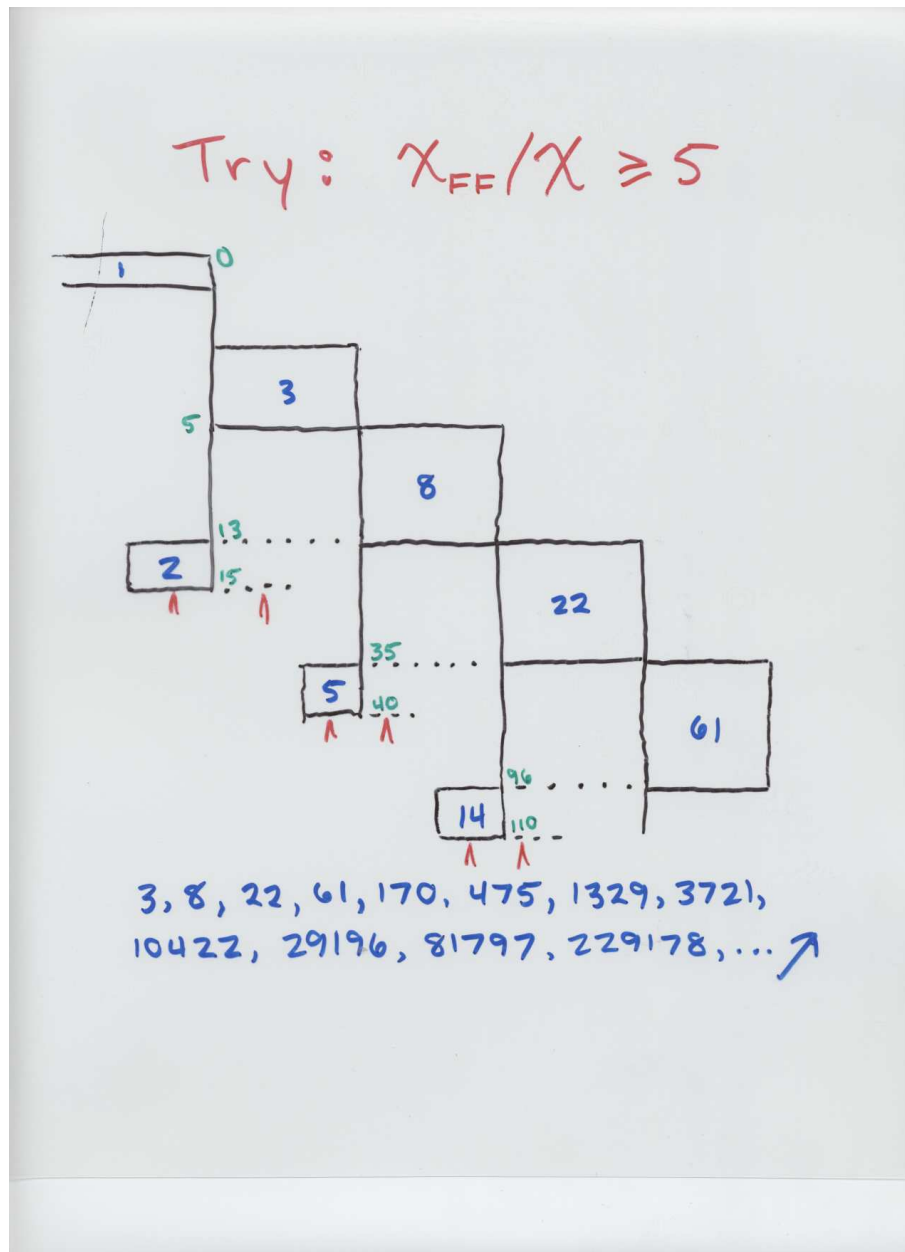 Try: χFF/χ ≥ 5
0
1
3
5
8
13
2
15
22
35
5
40
61
96
14
110
3, 8, 22, 61, 170, 475, 1329, 3721,
10422, 29196, 81797, 229178, ...